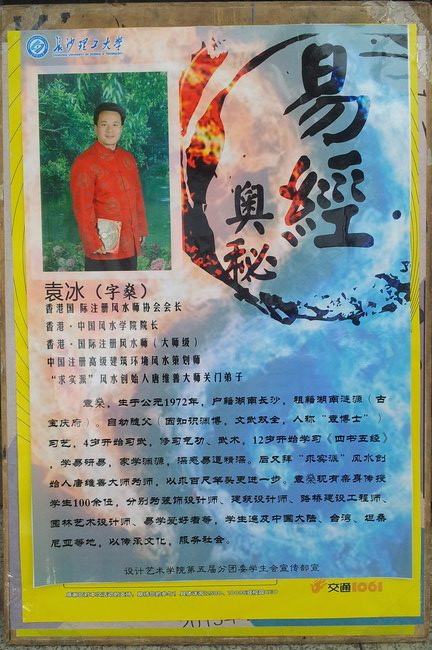 长沙理工大学
易經
奥秘
袁冰（字燊）
香港国际注册风水师协会会长
香港·中国风水学院院长
香港·国际注册风水师（大师级）
中国注册高级建筑环境风水策划师
“求实派”风水创始人唐维善大师关门弟子
袁燊，生于公元1972年，户籍湖南长沙，祖籍湖南涟源（古
宝庆府）。自幼随父（因知识渊博，文武双全，人称“袁博士”）
习艺，4岁开始习武，修习气功、武术，12岁开始学习《四书五经》
，学易研易，家学渊源，深悉易道精深。后又拜“求实派”风水创
始人唐维善大师为师，从此百尺竿头更进一步。袁燊现有亲身传授
学生100余位，分别为装饰设计师、建筑设计师、路桥建设工程师、
园林艺术设计师、易学爱好者等，学生遍及中国大陆、台湾、坦桑
尼亚等地，以传承文化，服务社会。
设计艺术学院第五届分团委学生会宣传部宣
交通1061